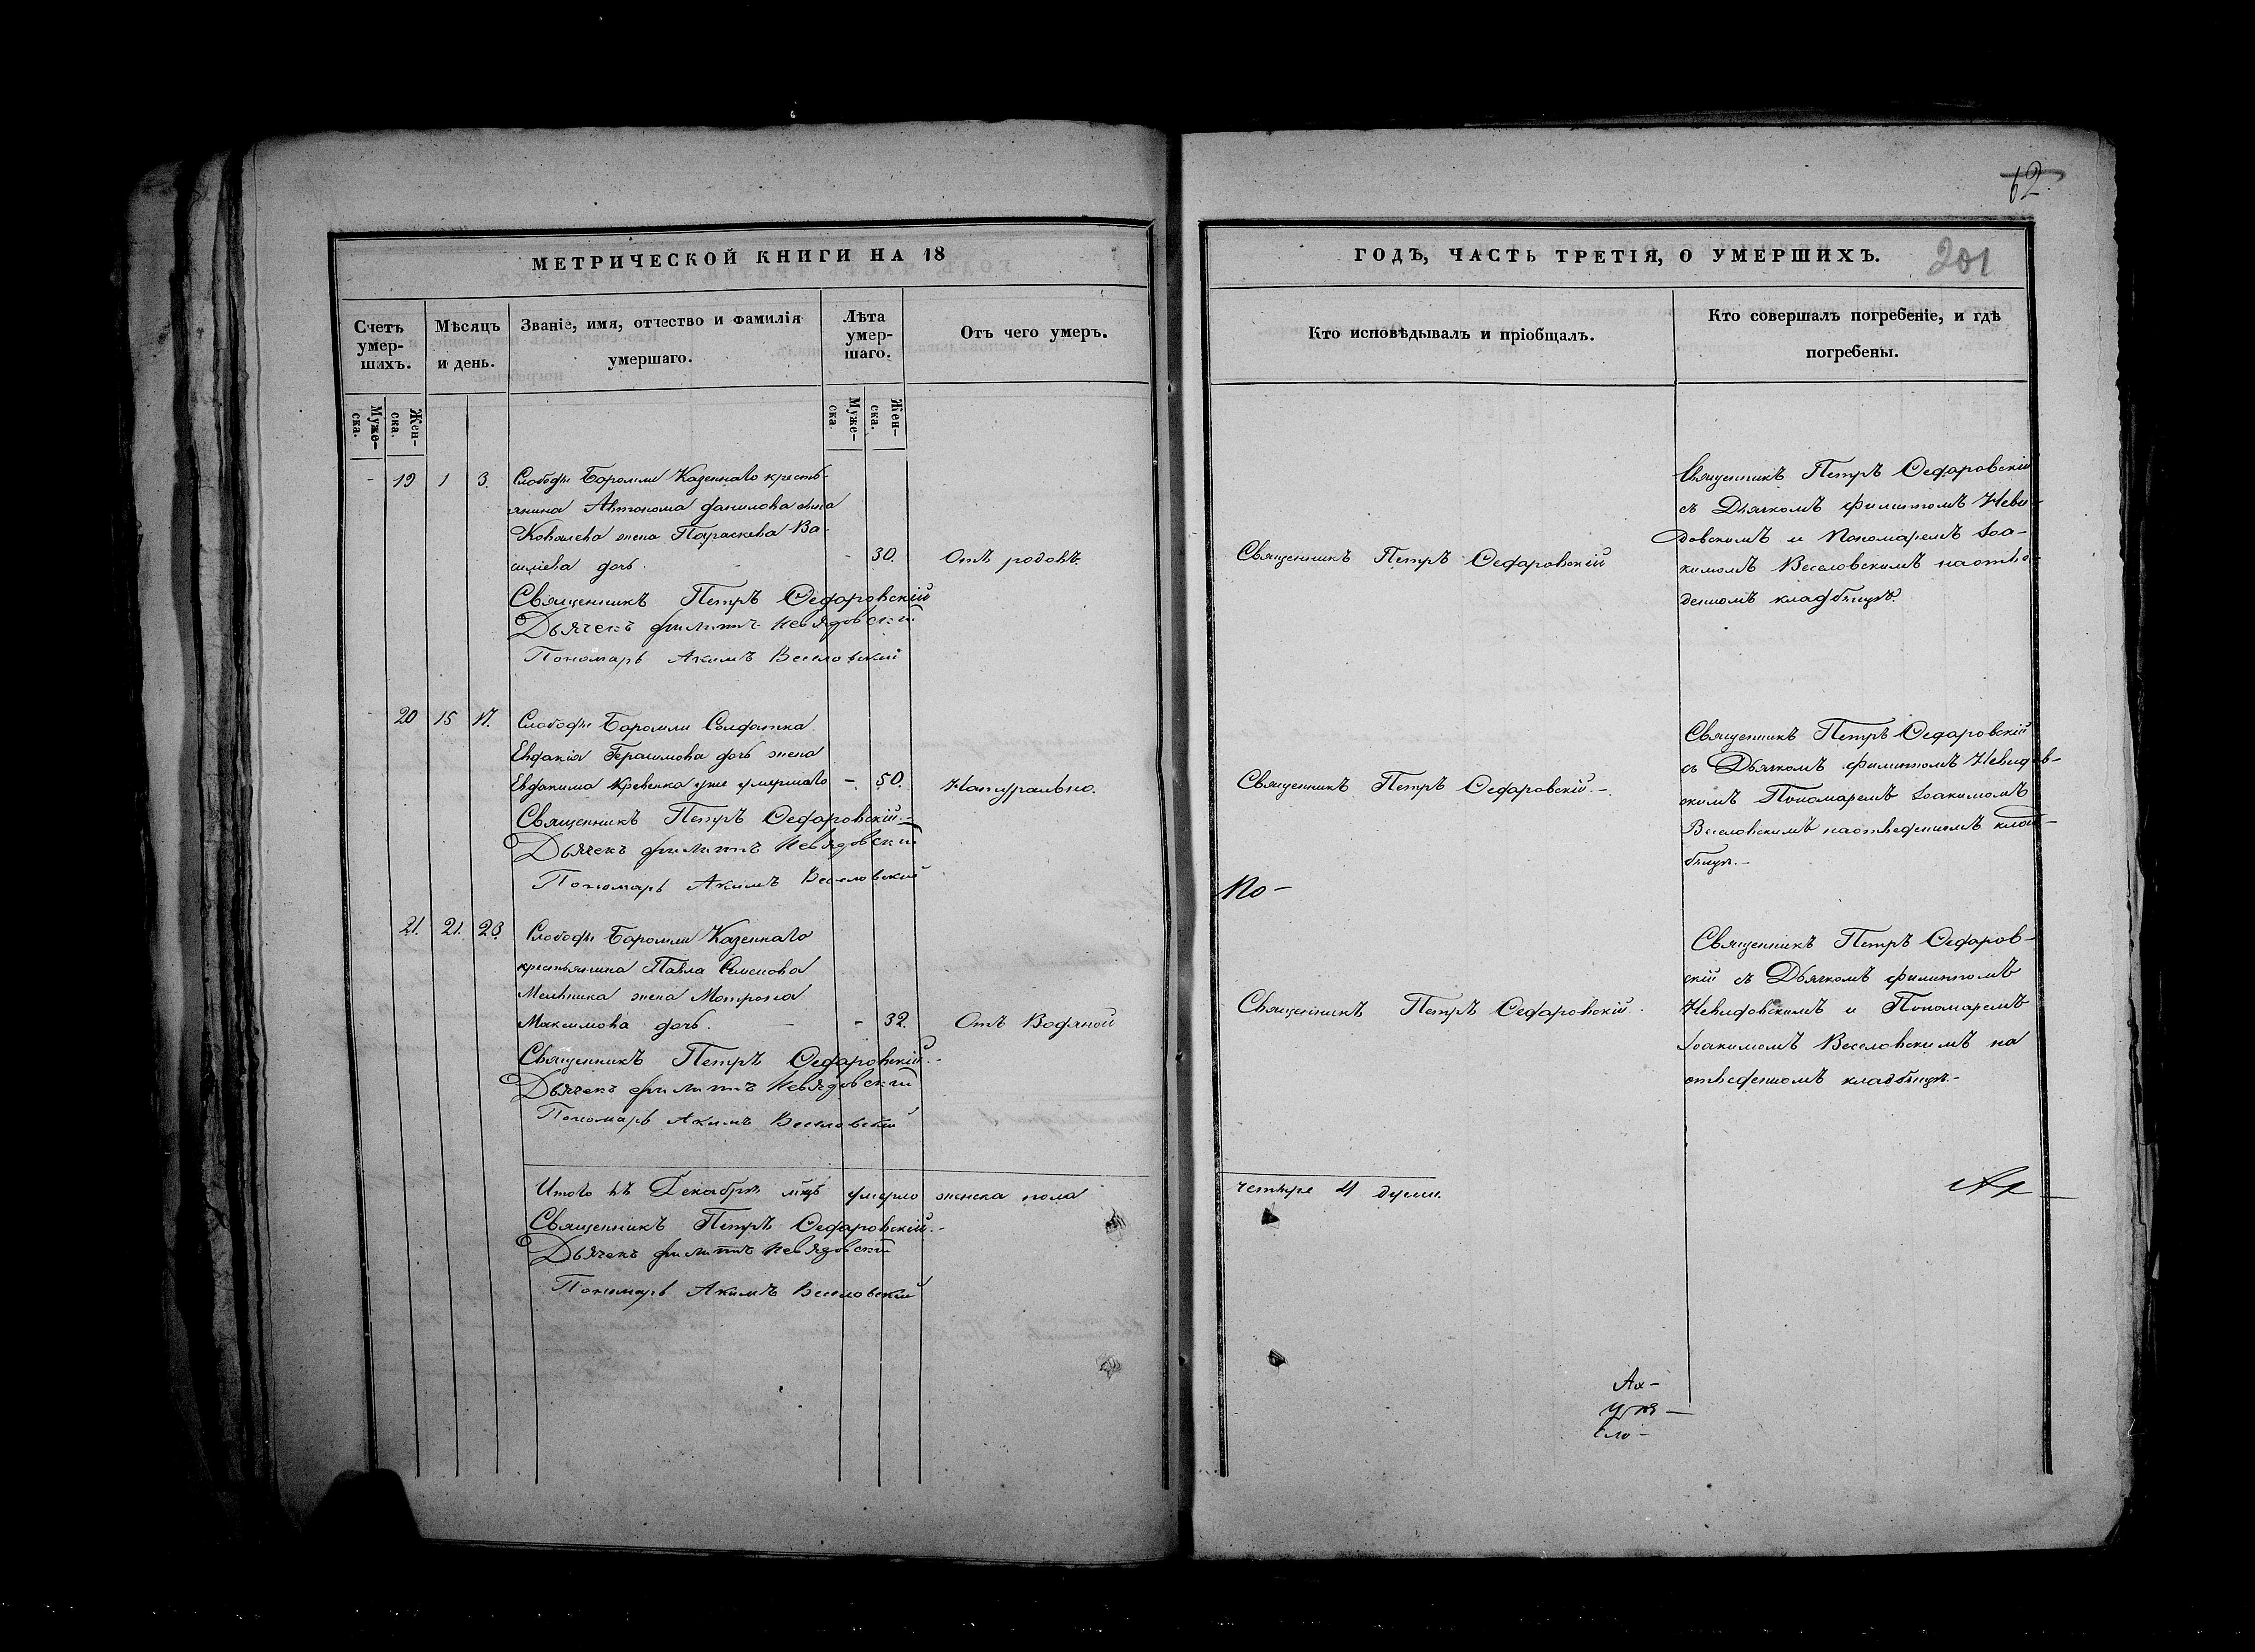 62
МЕТРИЧЕСКОЙ КНИГИ НА 18
ГОДЪ, ЧАСТЬ ТРЕТІЯ, О УМЕРШИХЪ.
201
Счетъ умер-шихъ.
Мѣсяцъ и день.
Званіе, имя, отчество и фамилія умершаго.
Лѣта умер-шаго.
Отъ чего умеръ.
Кто исповѣдывалъ и пріобщалъ.
Кто совершалъ погребеніе, и гдѣ погребены.
Муже-ска.
Жен-ска.
Муже-ска
Жен-ска.
- 19 1 3. Слободы Боромли Казеннаго кресть-
янина Автонома Данилова сына
Ковалева жена Параскева Ва-
силіева дочь. - 30. Отъ родовъ.
Священникъ Петръ Сефаровскій
Дьячекъ Филиппъ Невядовскій
Пономарь Акимъ Веселовскій
Священникъ Петръ Сефаровскій
Священникъ Петръ Сефаровскій
съ Дьячкомъ Филиппомъ Неви-
довскимъ и Пономаремъ Іоа-
кимомъ Веселовскимъ на отве-
денномъ кладбищѣ.
20 15 17. Слободы Боромли Солдатка
Евдакія Герасимова дочь жена
Евдакима Кревенка уже умершаго - 50. Натурально.
Священникъ Петръ Сефаровскій.-
Дьячекъ Филиппъ Невядовскій
Пономарь Акимъ Веселовскій
Священникъ Петръ Сефаровскій.-
По-
Священникъ Петръ Сефаровскій
съ Дьячкомъ Филиппомъ Невидов-
скимъ Пономаремъ Іоакимомъ
Веселовскимъ на отведенномъ клад-
бищѣ.-
21. 21. 23. Слободы Боромли Казеннаго
крестьянина Павла Семенова
Мельника жена Матрона
Максимова дочь. - - 32. Отъ Водяной
Священникъ Петръ Сефаровскій.-
Дьячекъ Филиппъ Невядовскій
Пономарь Акимъ Веселовскій
Священникъ Петръ Сефаровскій.
Священникъ Петръ Сефаров-
скій съ Дьячкомъ Филиппомъ
Невидовскимъ и Пономаремъ
Іоакимомъ Веселовскимъ на
отведенномъ кладбищѣ.-
Итого въ Декабрѣ мцѣ умерло женска пола
четыре 4 души.
Священникъ Петръ Сефаровскій.-
Дьячекъ Филиппъ Невядовскій
Пономарь Акимъ Веселовскій
Ах-
сло-